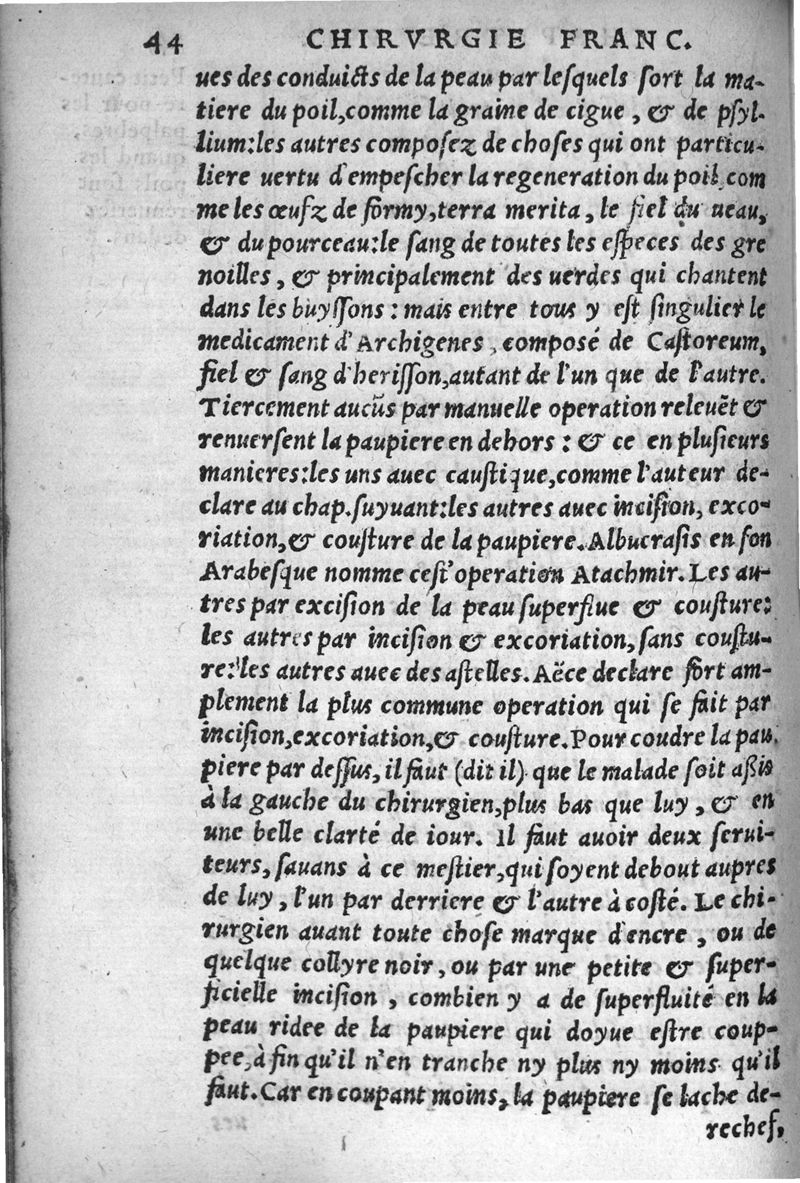 44 CHIRVRGIE FRANC.
ues des conduicts de la peau par lesquels sort la ma-
tiere du poil, comme la graine de cigue, & de psyl-
lium: les autres composez de choses qui ont particu-
liere uertu d'empescher la regeneration du poil com
me les œufz de formy, terra merita, le fiel du ueau,
& du pourceau: le sang de toutes les especes des gre
noilles, & principalement des uerdes qui chantent
dans les buyssons: mais entre tous y est singulier le
medicament d'Archigenes, composé de Castoreum,
fiel & sang d'herisson, autant de l'un que de l'autre.
Tiercement aucũs par manuelle operation releuẽt &
renuersent la paupiere en dehors: & ce en plusieurs
manieres: les uns auec caustique, comme l'auteur de-
clare au chap. suyuant: les autres auec incision, exco-
riation, & cousture de la paupiere. Albucrasis en son
Arabesque nomme cest' operation Atachmir. Les au-
tres par excision de la peau superflue & cousture:
les autres par incision & excoriation, sans coustu-
re: les autres auec des astelles. Aëce declare fort am-
plement la plus commune operation qui se fait par
incision, excoriation, & cousture. Pour coudre la pau
piere par dessus, il faut (dit il) que le malade soit assis
à la gauche du chirurgien, plus bas que luy, & en
une belle clarté de iour. Il faut auoir deux serui-
teurs, sauans à ce mestier, qui soyent debout aupres
de luy, l'un par derriere & l'autre à costé. Le chi-
rurgien auant toute chose marque d'encre, ou de
quelque collyre noir, ou par une petite & super-
ficielle incision, combien y a de superfluité en la
peau ridee de la paupiere qui doyue estre coup-
pee, à fin qu'il n'en tranche ny plus ny moins qu'il
faut. Car en coupant moins, la paupiere se lache de-
rechef,